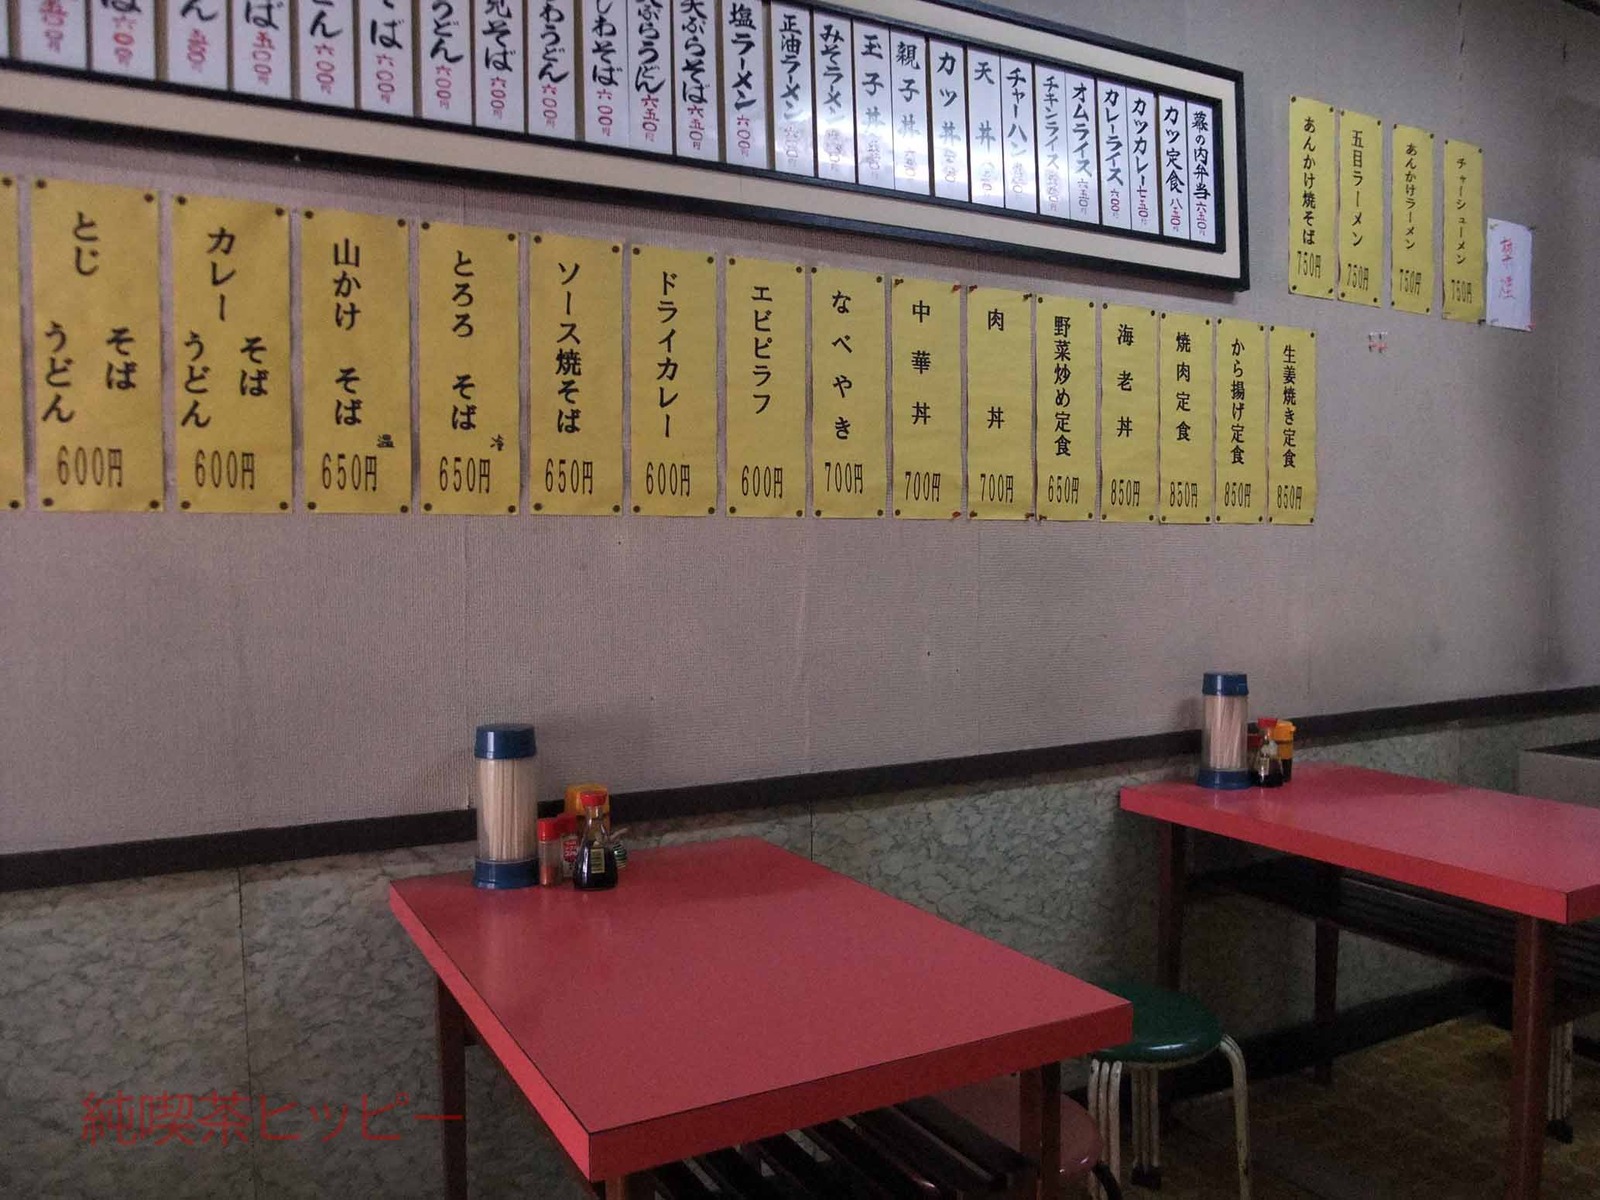 塩ラーメン 六〇〇円
正油ラーメン
みそラーメン
玉子丼
親子丼
カツ丼
天丼
チャーハン
チキンライス
オムライス 六五〇円
カレーライス 六〇〇円
カツカレー 七五〇円
カツ定食 八五〇円
幕の内弁当 六五〇円
うどん 六〇〇円
わうどん 六〇〇円
しわそば 六〇〇円
ぷらうどん 六五〇円
天ぷらそば 六五〇円
とじ そば うどん 600円
カレー そば うどん 600円
山かけ そば 温 650円
とろろ そば 冷 650円
ソース焼そば 650円
ドライカレー 600円
エビピラフ 600円
なべやき 700円
中華丼 700円
肉丼 700円
野菜炒め定食 650円
海老丼 850円
焼肉定食 850円
から揚げ定食 850円
生姜焼き定食 850円
あんかけ焼そば 750円
五目ラーメン 750円
あんかけラーメン 750円
チャーシューメン 750円
純喫茶ヒッピー